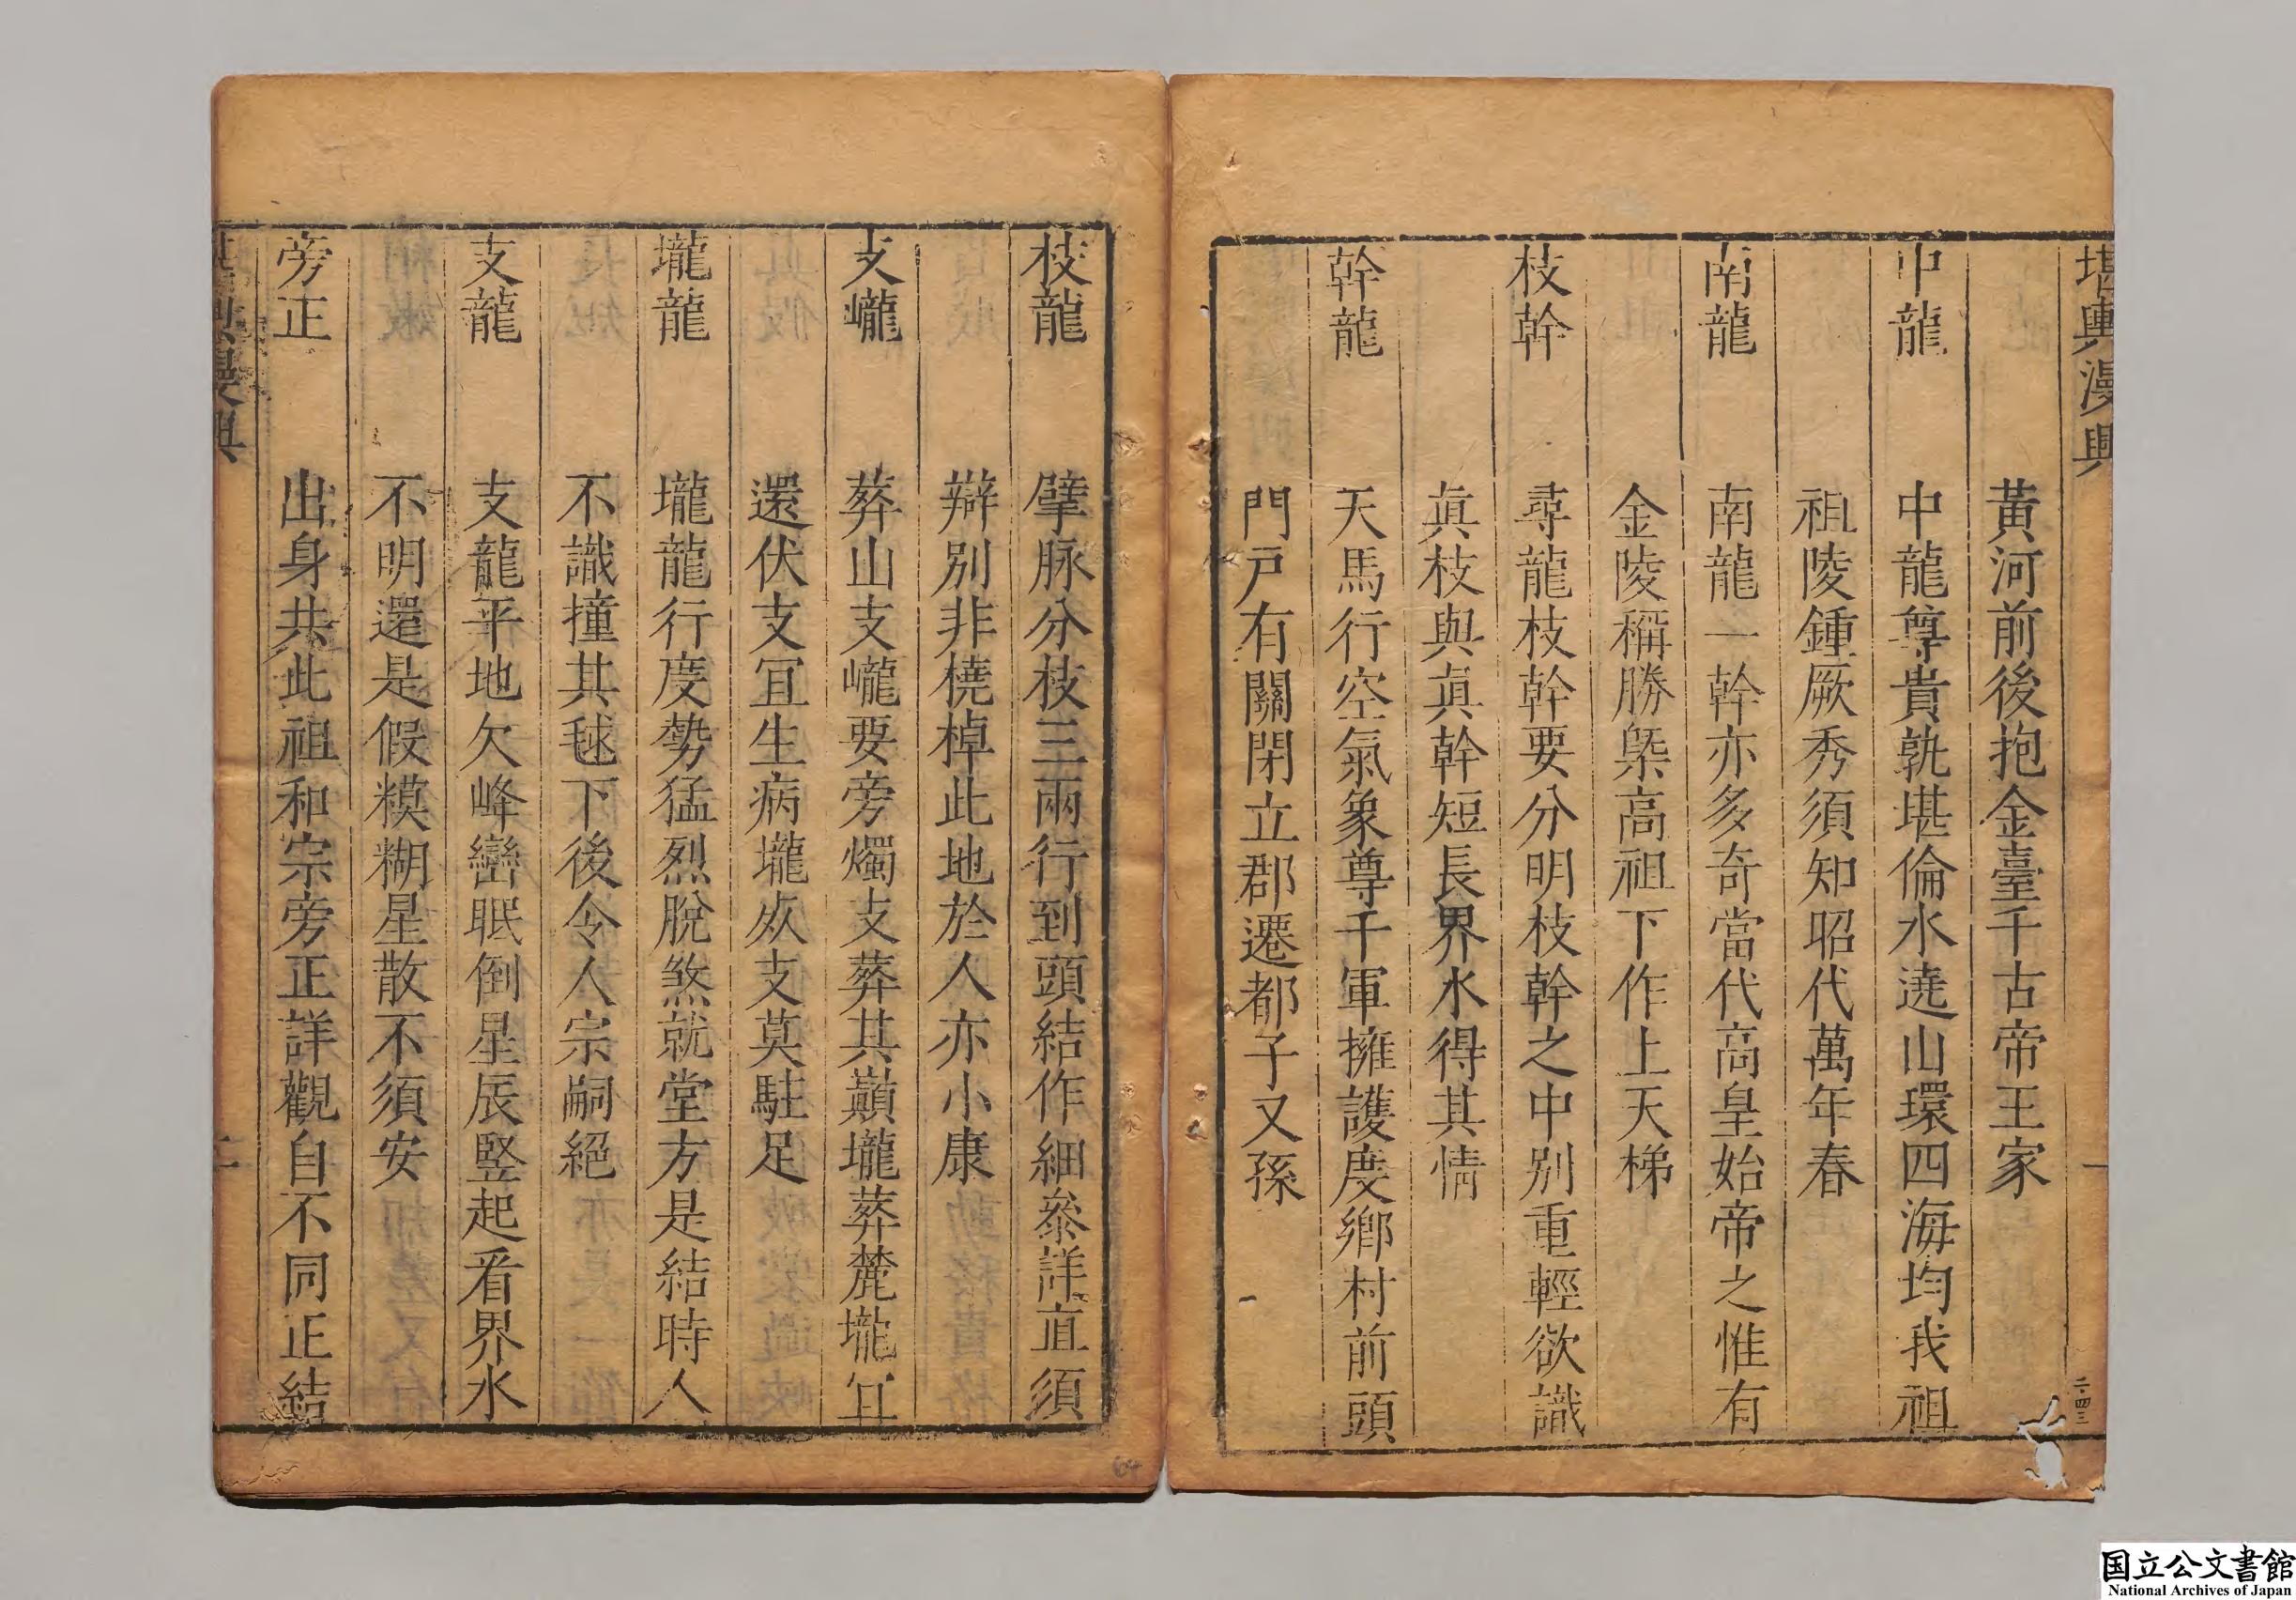 堪輿漫興
黃河前後抱金臺千古帝王家
中龍　中龍尊貴孰堪倫水遶山環四海均我祖
祖陵鍾厥秀須知昭代萬年春
南龍　南龍一幹亦多奇當代高皇始帝之惟有
金陵稱勝槩高祖下作上天梯
枝幹　尋龍枝幹要分明枝幹之中別重輕欲識
眞枝與眞幹短長界水得其情
幹龍　天馬行空氣象尊千軍擁護度鄉村前頭
門戸有關閉立郡遷都子又孫
一
二四三
枝龍　擘脉分枝三兩行到頭結作細叅詳直須
辯別非橈棹此地於人亦小康
支巃　葬山支巃要旁燭支葬其巔壠葬麓壠宜
還伏支宜生病壠㸃支莫駐足
壠龍　壠龍行度勢猛烈脫煞就堂方是結時人
不識撞其毬下後令人宗嗣絕
支龍　支龍平地欠峰巒眠倒星辰竪起看界水
不明還是假糢糊星散不須安
旁正　出身共此祖和宗旁正詳觀自不同正結
堪輿漫興
二
64
国立公文書館
National Archives of Japan